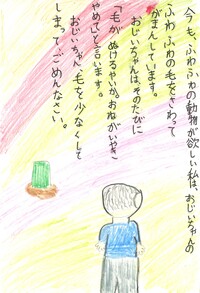 今も、ふわふわの動物が欲しい私は、おじいちゃんの
ふわふわの毛をさわって
がまんしています。
おじいちゃんは、そのたびに
「毛がぬけるやいか。おねがいやき
やめて」と言います。
おじいちゃん、毛を少なくして
しまってごめんなさい。